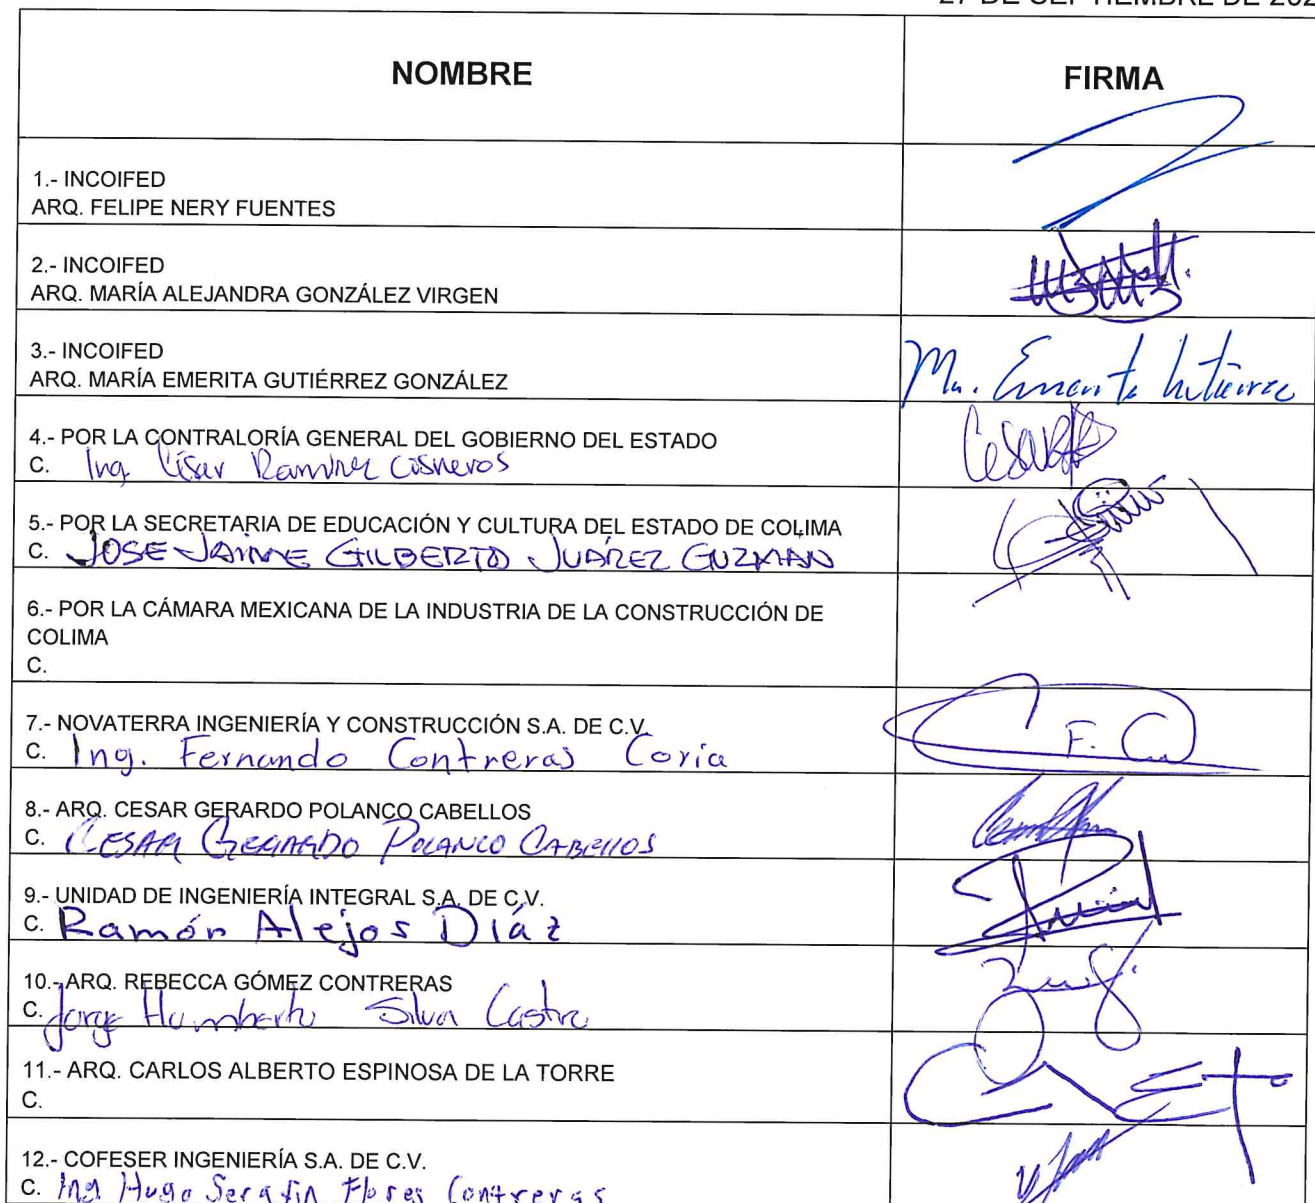 27 DE SEPTIEMBRE DE 202
NOMBRE
FIRMA
1.- INCOIFED
ARQ. FELIPE NERY FUENTES
2.- INCOIFED
ARQ. MARÍA ALEJANDRA GONZÁLEZ VIRGEN
3.- INCOIFED
ARQ. MARÍA EMERITA GUTIÉRREZ GONZÁLEZ
Ma. Emerita Gutiérrez
4.- POR LA CONTRALORÍA GENERAL DEL GOBIERNO DEL ESTADO
C. Ing. César Ramírez Cisneros
5.- POR LA SECRETARIA DE EDUCACIÓN Y CULTURA DEL ESTADO DE COLIMA
C. JOSE JAIME GILBERTO JUÁREZ GUZMAN
6.- POR LA CÁMARA MEXICANA DE LA INDUSTRIA DE LA CONSTRUCCIÓN DE
COLIMA
C.
7.- NOVATERRA INGENIERÍA Y CONSTRUCCIÓN S.A. DE C.V.
C. Ing. Fernando Contreras Coria
8.- ARQ. CESAR GERARDO POLANCO CABELLOS
C. CESAR GERARDO POLANCO CABELLOS
9.- UNIDAD DE INGENIERÍA INTEGRAL S.A. DE C.V.
C. Ramón Alejos Díaz
10.- ARQ. REBECCA GÓMEZ CONTRERAS
C. Jorge Humberto Silva Castro
11.- ARQ. CARLOS ALBERTO ESPINOSA DE LA TORRE
C.
12.- COFESER INGENIERÍA S.A. DE C.V.
C. Ing Hugo Serafín Flores Contreras